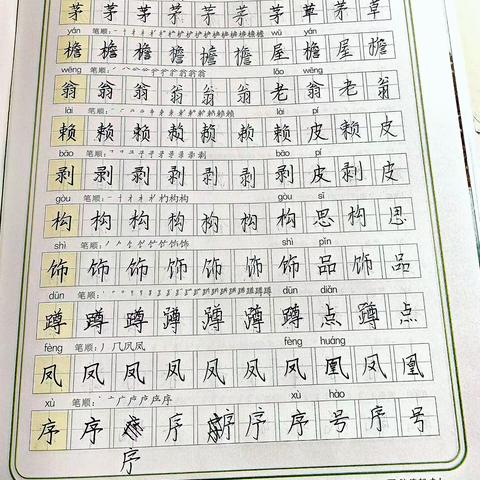 茅 茅 茅 茅 茅 茅 茅 草 茅 草
yán 笔顺: wū yán
檐 檐 檐 檐 檐 檐 屋 檐 屋 檐
wēng 笔顺: lǎo wēng
翁 翁 翁 翁 翁 翁 老 翁 老 翁
lài 笔顺: lài pí
赖 赖 赖 赖 赖 赖 赖 皮 赖 皮
bāo 笔顺: bāo pí
剥 剥 剥 剥 剥 剥 剥 皮 剥 皮
gòu 笔顺: gòu sī
构 构 构 构 构 构 构 思 构 思
shì 笔顺: shì pǐn
饰 饰 饰 饰 饰 饰 饰 品 饰 品
dūn 笔顺: dūn diǎn
蹲 蹲 蹲 蹲 蹲 蹲 蹲 点 蹲 点
fèng 笔顺: fèng huáng
凤 凤 凤 凤 凤 凤 凤 凰 凤 凰
xù 笔顺: xù hào
序 序 序 序 序 序 号 序 号
序